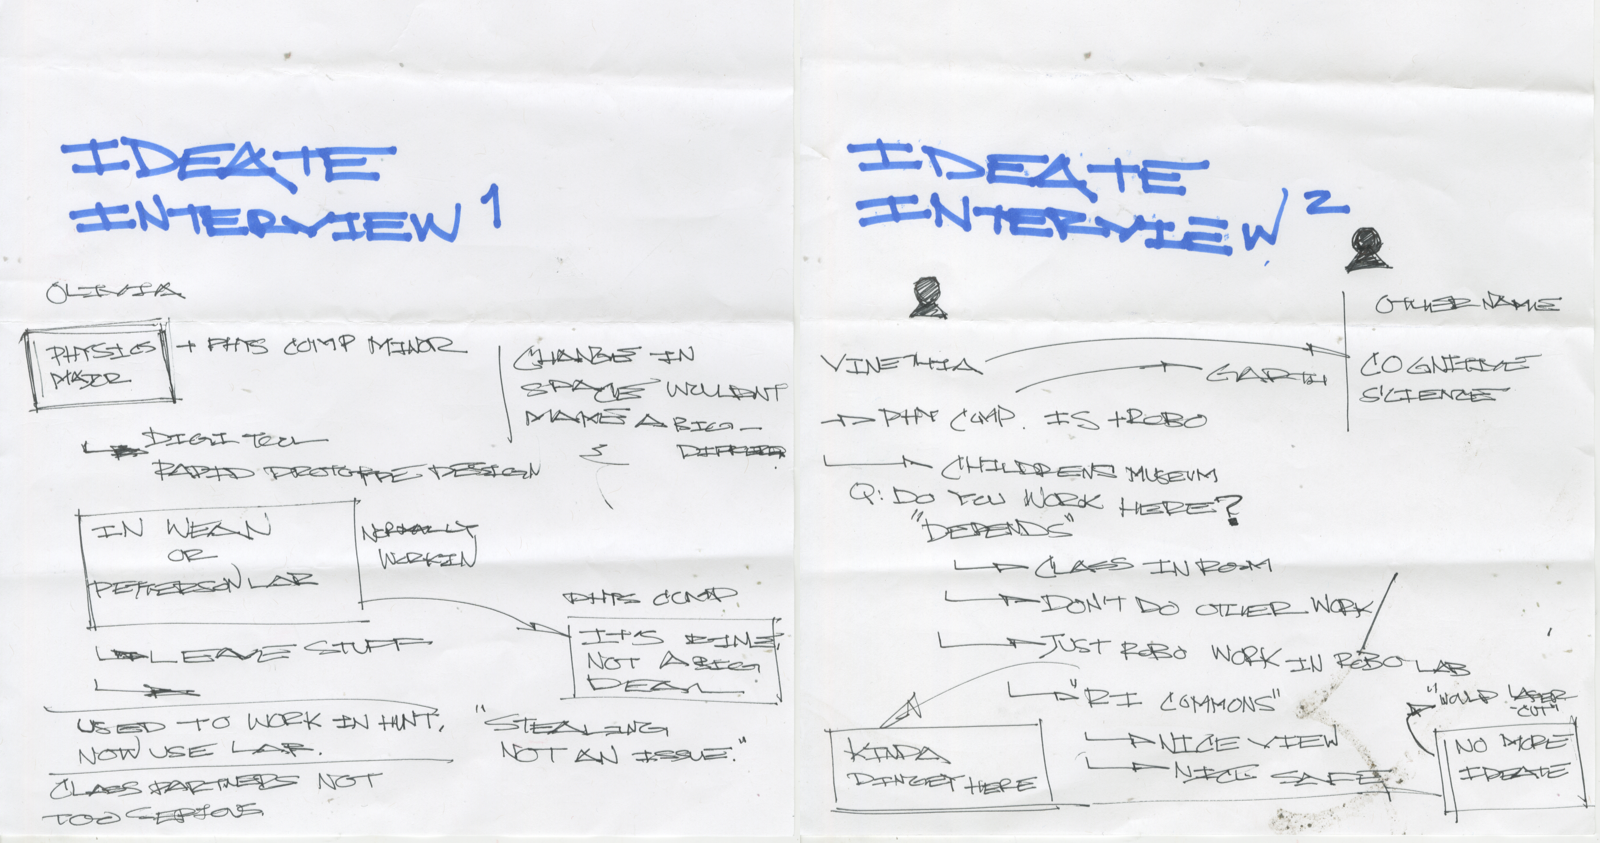 IDEATE
INTERVIEW 1
OLIVIA
PHYSICS
MAJOR
+ PHYS COMP MINOR
CHANGE IN
SPACE WOULDNT
MAKE A BIG
DIGI TOOL
RAPID PROTOTYPE DESIGN
IN WEAN
OR
PETTERSON LAB
NORMALLY
WORK IN
LEAVE STUFF
PHYS COMP
IT'S FINE,
NOT A BIG
DEAL
USED TO WORK IN HUNT,
NOW USE LAB.
"STEALING
NOT AN ISSUE."
CLASS PARTNERS NOT
TOO SERIOUS
IDEATE
INTERVIEW 2
OTHER NAME
VINETHIA
GARTH
COGNITIVE
SCIENCE
PHY COMP. IS + ROBO
CHILDRENS MUSEUM
Q: DO YOU WORK HERE?
"DEPENDS"
CLASS IN ROOM
DON'T DO OTHER WORK
JUST ROBO WORK IN ROBO LAB
"RI COMMONS"
NICE VIEW
SAFE
KINDA
HERE
"WOULD LASER
CUT"
NO MORE
IDEATE